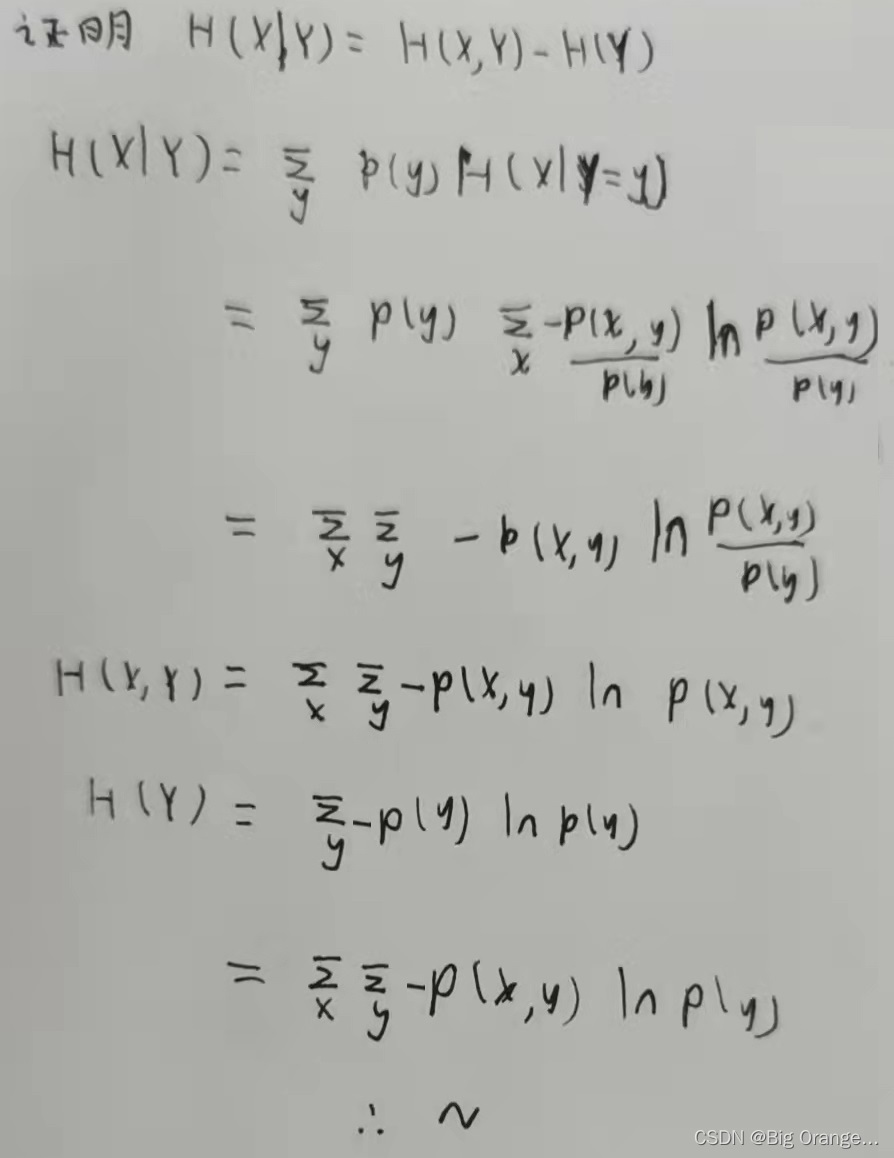 证明 H(X|Y) = H(X,Y) - H(Y)
H(X|Y) = Σ_y p(y) H(X|Y=y)
= Σ_y p(y) Σ_x -p(x,y)/p(y) ln p(x,y)/p(y)
= Σ_x Σ_y - p(x,y) ln p(x,y)/p(y)
H(X,Y) = Σ_x Σ_y -p(x,y) ln p(x,y)
H(Y) = Σ_y -p(y) ln p(y)
= Σ_x Σ_y -p(x,y) ln p(y)
∴ ~
CSDN @Big Orange...